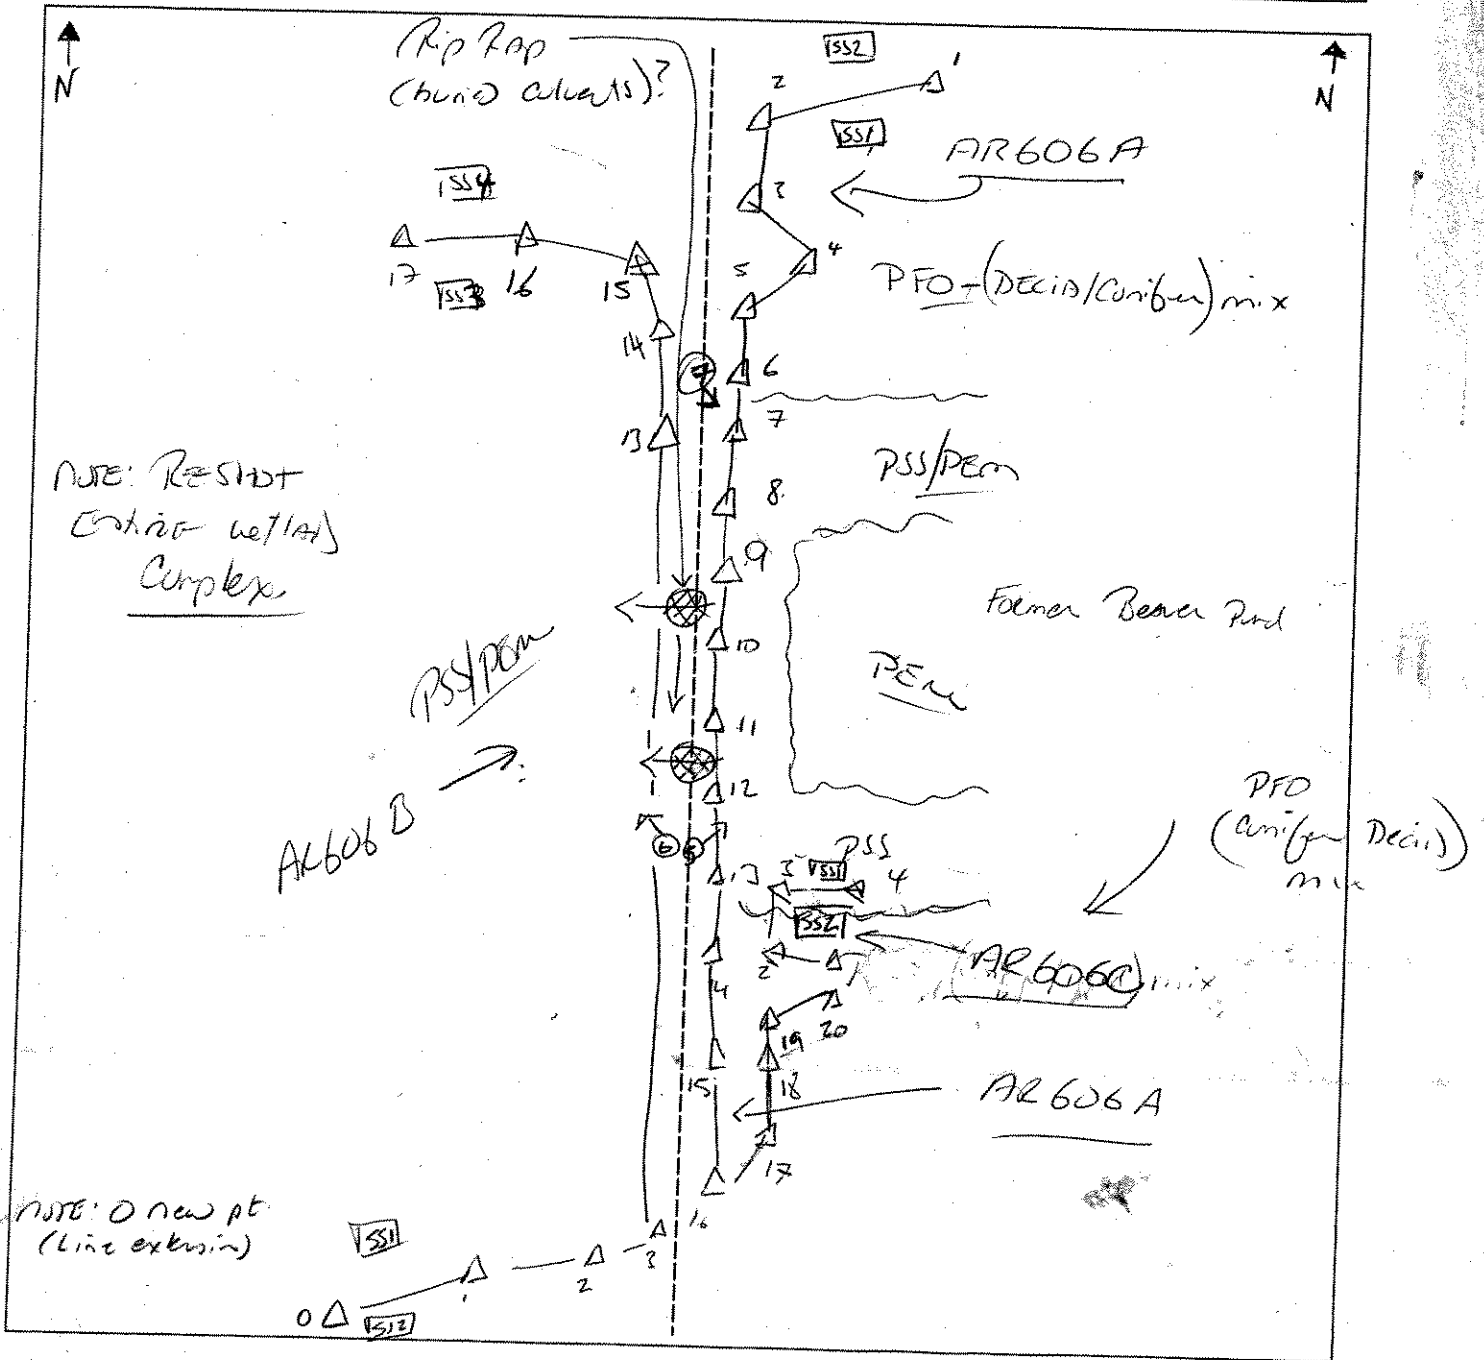 N
N
Rip Rap
(buried culverts)?
SS2
1
2
SS1
AR606A
3
SS4
17
16
15
SS3
4
5
PFO-(DECID/Conifer) mix
14
6
7
13
PSS/PEM
8
NOTE:
Entire wetland
Complex
9
Former Beaver Pond
10
PSS/PEM
PEM
11
12
AR606B
PFO
(Conifer Decid)
mix
6
5
13
PSS
3
SS1
4
SS2
2
1
AR606C
mix
14
20
19
15
18
AR606A
17
16
NOTE: 0 new pt.
(Line extension)
SS1
3
2
1
0
SS2